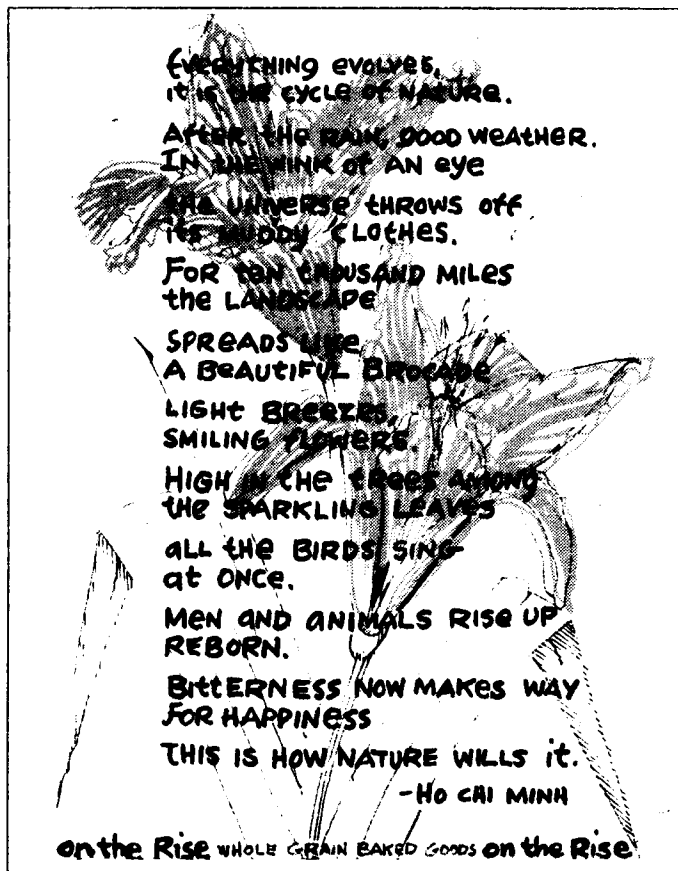 Everything evolves,
it is the cycle of nature.
After the rain, good weather.
In the wink of an eye
the universe throws off
its muddy clothes.
For ten thousand miles
the landscape
spreads like
a beautiful brocade
Light breezes,
smiling flowers.
High in the trees among
the sparkling leaves
all the birds sing
at once.
Men and animals rise up
reborn.
Bitterness now makes way
for happiness
This is how nature wills it.
-Ho Chi Minh
on the Rise WHOLE GRAIN BAKED GOODS on the Rise